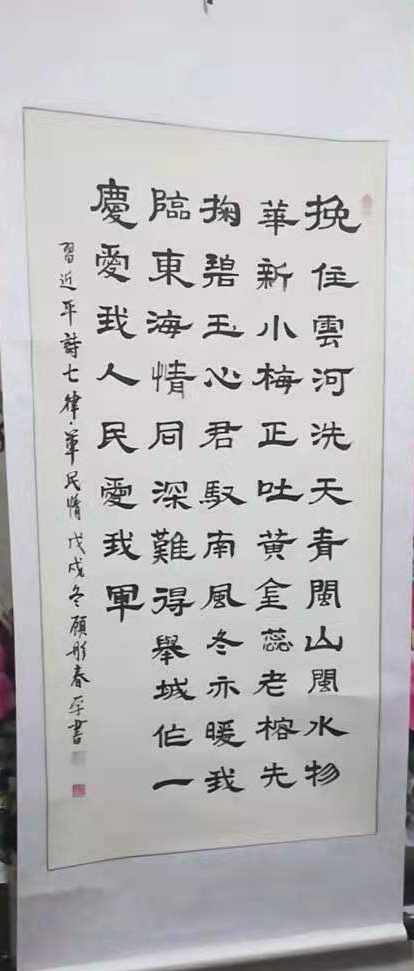 挽住雲河洗天青閩山閩水物
華新小梅正吐黃金蕊老榕先
掬碧玉心君馭南風冬亦暖我
臨東海情同深難得舉城作一
慶愛我人民愛我軍
習近平詩七律·軍民情戊戌冬顧彤春書